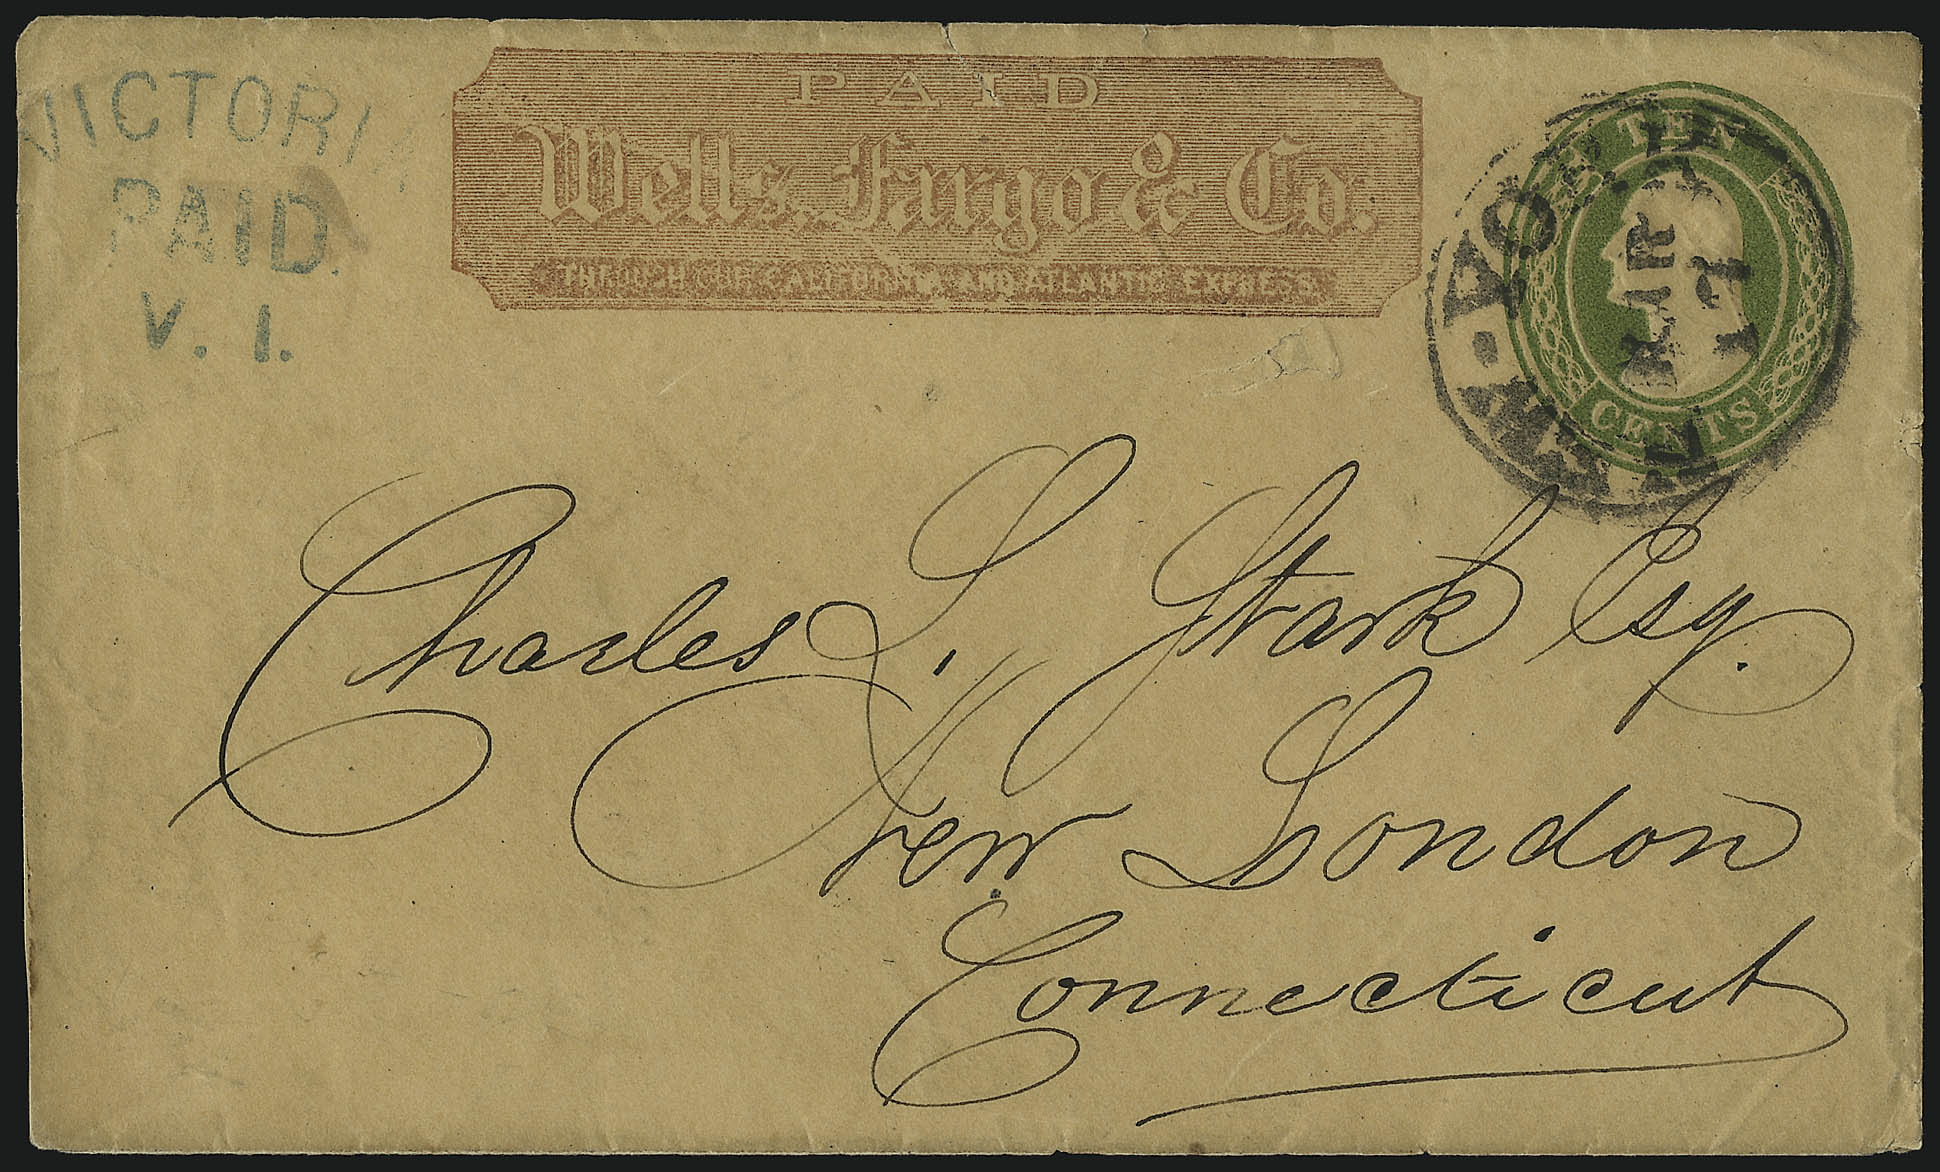 VICTORIA
PAID.
V. I.
PAID
Wells, Fargo & Co.
THROUGH OUR CALIFORNIA AND ATLANTIC EXPRESS.
TEN
CENTS
NEW-YORK
MAR
17
Charles L. Stark Esq.
New London
Connecticut